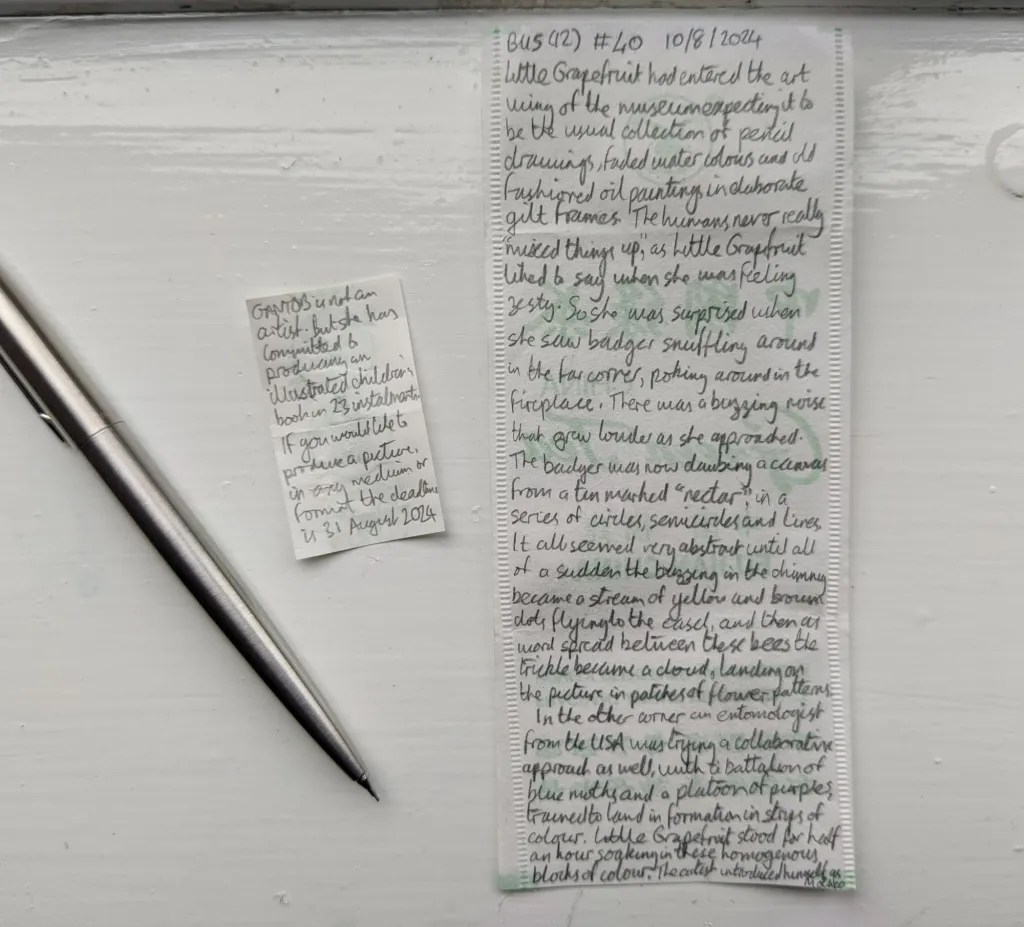 GANTOB is not an
artist. But she has
committed to
producing an
illustrated children's
book in 23 instalments.
If you would like to
produce a picture,
in any medium or
format the deadline
is 31 August 2024
BUS (12) #40 10/8/2024
Little Grapefruit had entered the art
wing of the museum expecting it to
be the usual collection of pencil
drawings, faded water colours and old
fashioned oil paintings in elaborate
gilt frames. The humans never really
"mixed things up", as Little Grapefruit
liked to say when she was feeling
zesty. So she was surprised when
she saw badger snuffling around
in the far corner, poking around in the
fireplace. There was a buzzing noise
that grew louder as she approached.
The badger was now daubing a canvas
from a tin marked "nectar", in a
series of circles, semicircles and lines.
It all seemed very abstract until all
of a sudden the buzzing in the chimney
became a stream of yellow and brown
dots flying to the easel, and then as
word spread between these bees the
trickle became a cloud, landing on
the picture in patches of flower patterns.
In the other corner an entomologist
from the USA was trying a collaborative
approach as well, with a battalion of
blue moths and a platoon of purples,
trained to land in formation in strips of
colour. Little Grapefruit stood for half
an hour soaking in these homogenous
blocks of colour. The artist introduced himself as